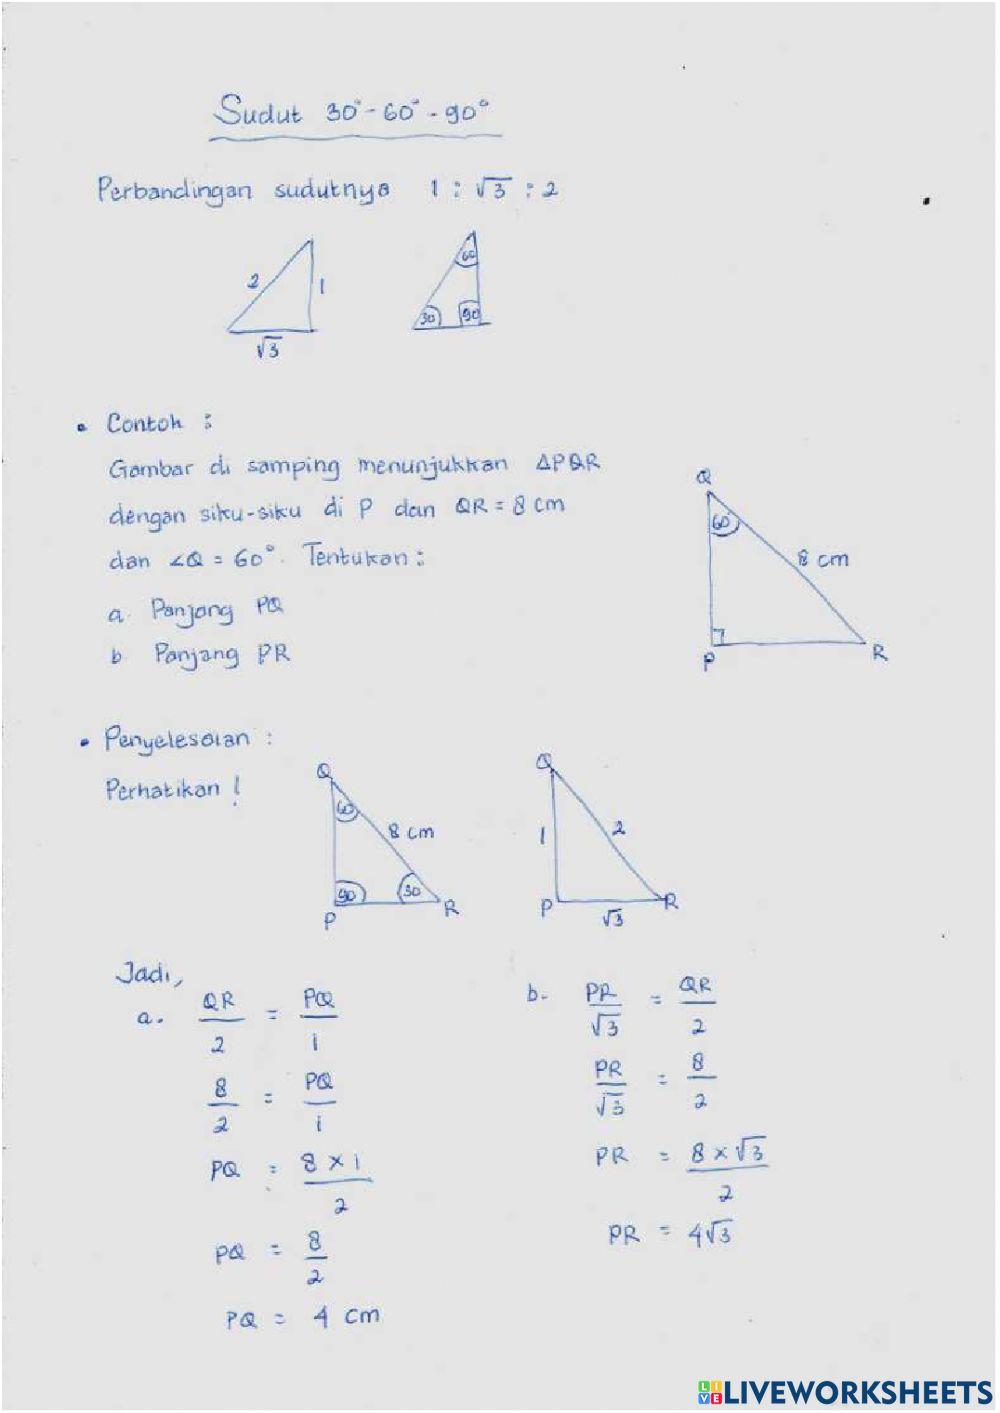 Sudut 30° - 60° - 90°
Perbandingan sudutnya 1 : √3 : 2
2
1
√3
60
30
90
• Contoh :
Gambar di samping menunjukkan ΔPQR
dengan siku-siku di P dan QR = 8 cm
dan ∠Q = 60°. Tentukan :
a. Panjang PQ
b. Panjang PR
Q
60
8 cm
P
R
• Penyelesaian :
Perhatikan !
Q
60
8 cm
90
30
P
R
Q
1
2
P
R
√3
Jadi,
a. QR/2 = PQ/1
8/2 = PQ/1
PQ = 8 × 1/2
PQ = 8/2
PQ = 4 cm
b. PR/√3 = QR/2
PR/√3 = 8/2
PR = 8 × √3/2
PR = 4√3
LIVE LIVEWORKSHEETS